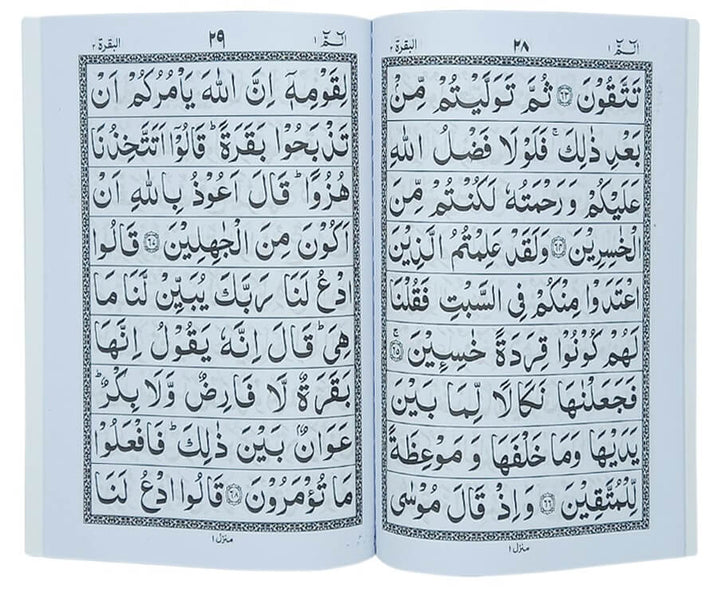 البقرة ٢
٢٨
الٓمّٓ ١
تَتَّقُوْنَ ۝٦٣ ثُمَّ تَوَلَّيْتُمْ مِّنْۢ
بَعْدِ ذٰلِكَ ۚ فَلَوْلَا فَضْلُ اللّٰهِ
عَلَيْكُمْ وَرَحْمَتُهٗ لَكُنْتُمْ مِّنَ
الْخٰسِرِيْنَ ۝٦٤ وَلَقَدْ عَلِمْتُمُ الَّذِيْنَ
اعْتَدَوْا مِنْكُمْ فِى السَّبْتِ فَقُلْنَا
لَهُمْ كُوْنُوْا قِرَدَةً خٰسِـِٕيْنَ ۝٦٥ۚ
فَجَعَلْنٰهَا نَكَالًا لِّمَا بَيْنَ
يَدَيْهَا وَمَا خَلْفَهَا وَمَوْعِظَةً
لِّلْمُتَّقِيْنَ ۝٦٦ وَاِذْ قَالَ مُوْسٰى
منزل ١
البقرة ٢
٢٩
الٓمّٓ ١
لِقَوْمِهٖٓ اِنَّ اللّٰهَ يَاْمُرُكُمْ اَنْ
تَذْبَحُوْا بَقَرَةً ؕ قَالُوْٓا اَتَتَّخِذُنَا
هُزُوًا ؕ قَالَ اَعُوْذُ بِاللّٰهِ اَنْ
اَكُوْنَ مِنَ الْجٰهِلِيْنَ ۝٦٧ قَالُوا
ادْعُ لَنَا رَبَّكَ يُبَيِّنْ لَّنَا مَا
هِىَ ؕ قَالَ اِنَّهٗ يَقُوْلُ اِنَّهَا
بَقَرَةٌ لَّا فَارِضٌ وَّلَا بِكْرٌ ؕ
عَوَانٌۢ بَيْنَ ذٰلِكَ ؕ فَافْعَلُوْا
مَا تُؤْمَرُوْنَ ۝٦٨ قَالُوا ادْعُ لَنَا
منزل ١